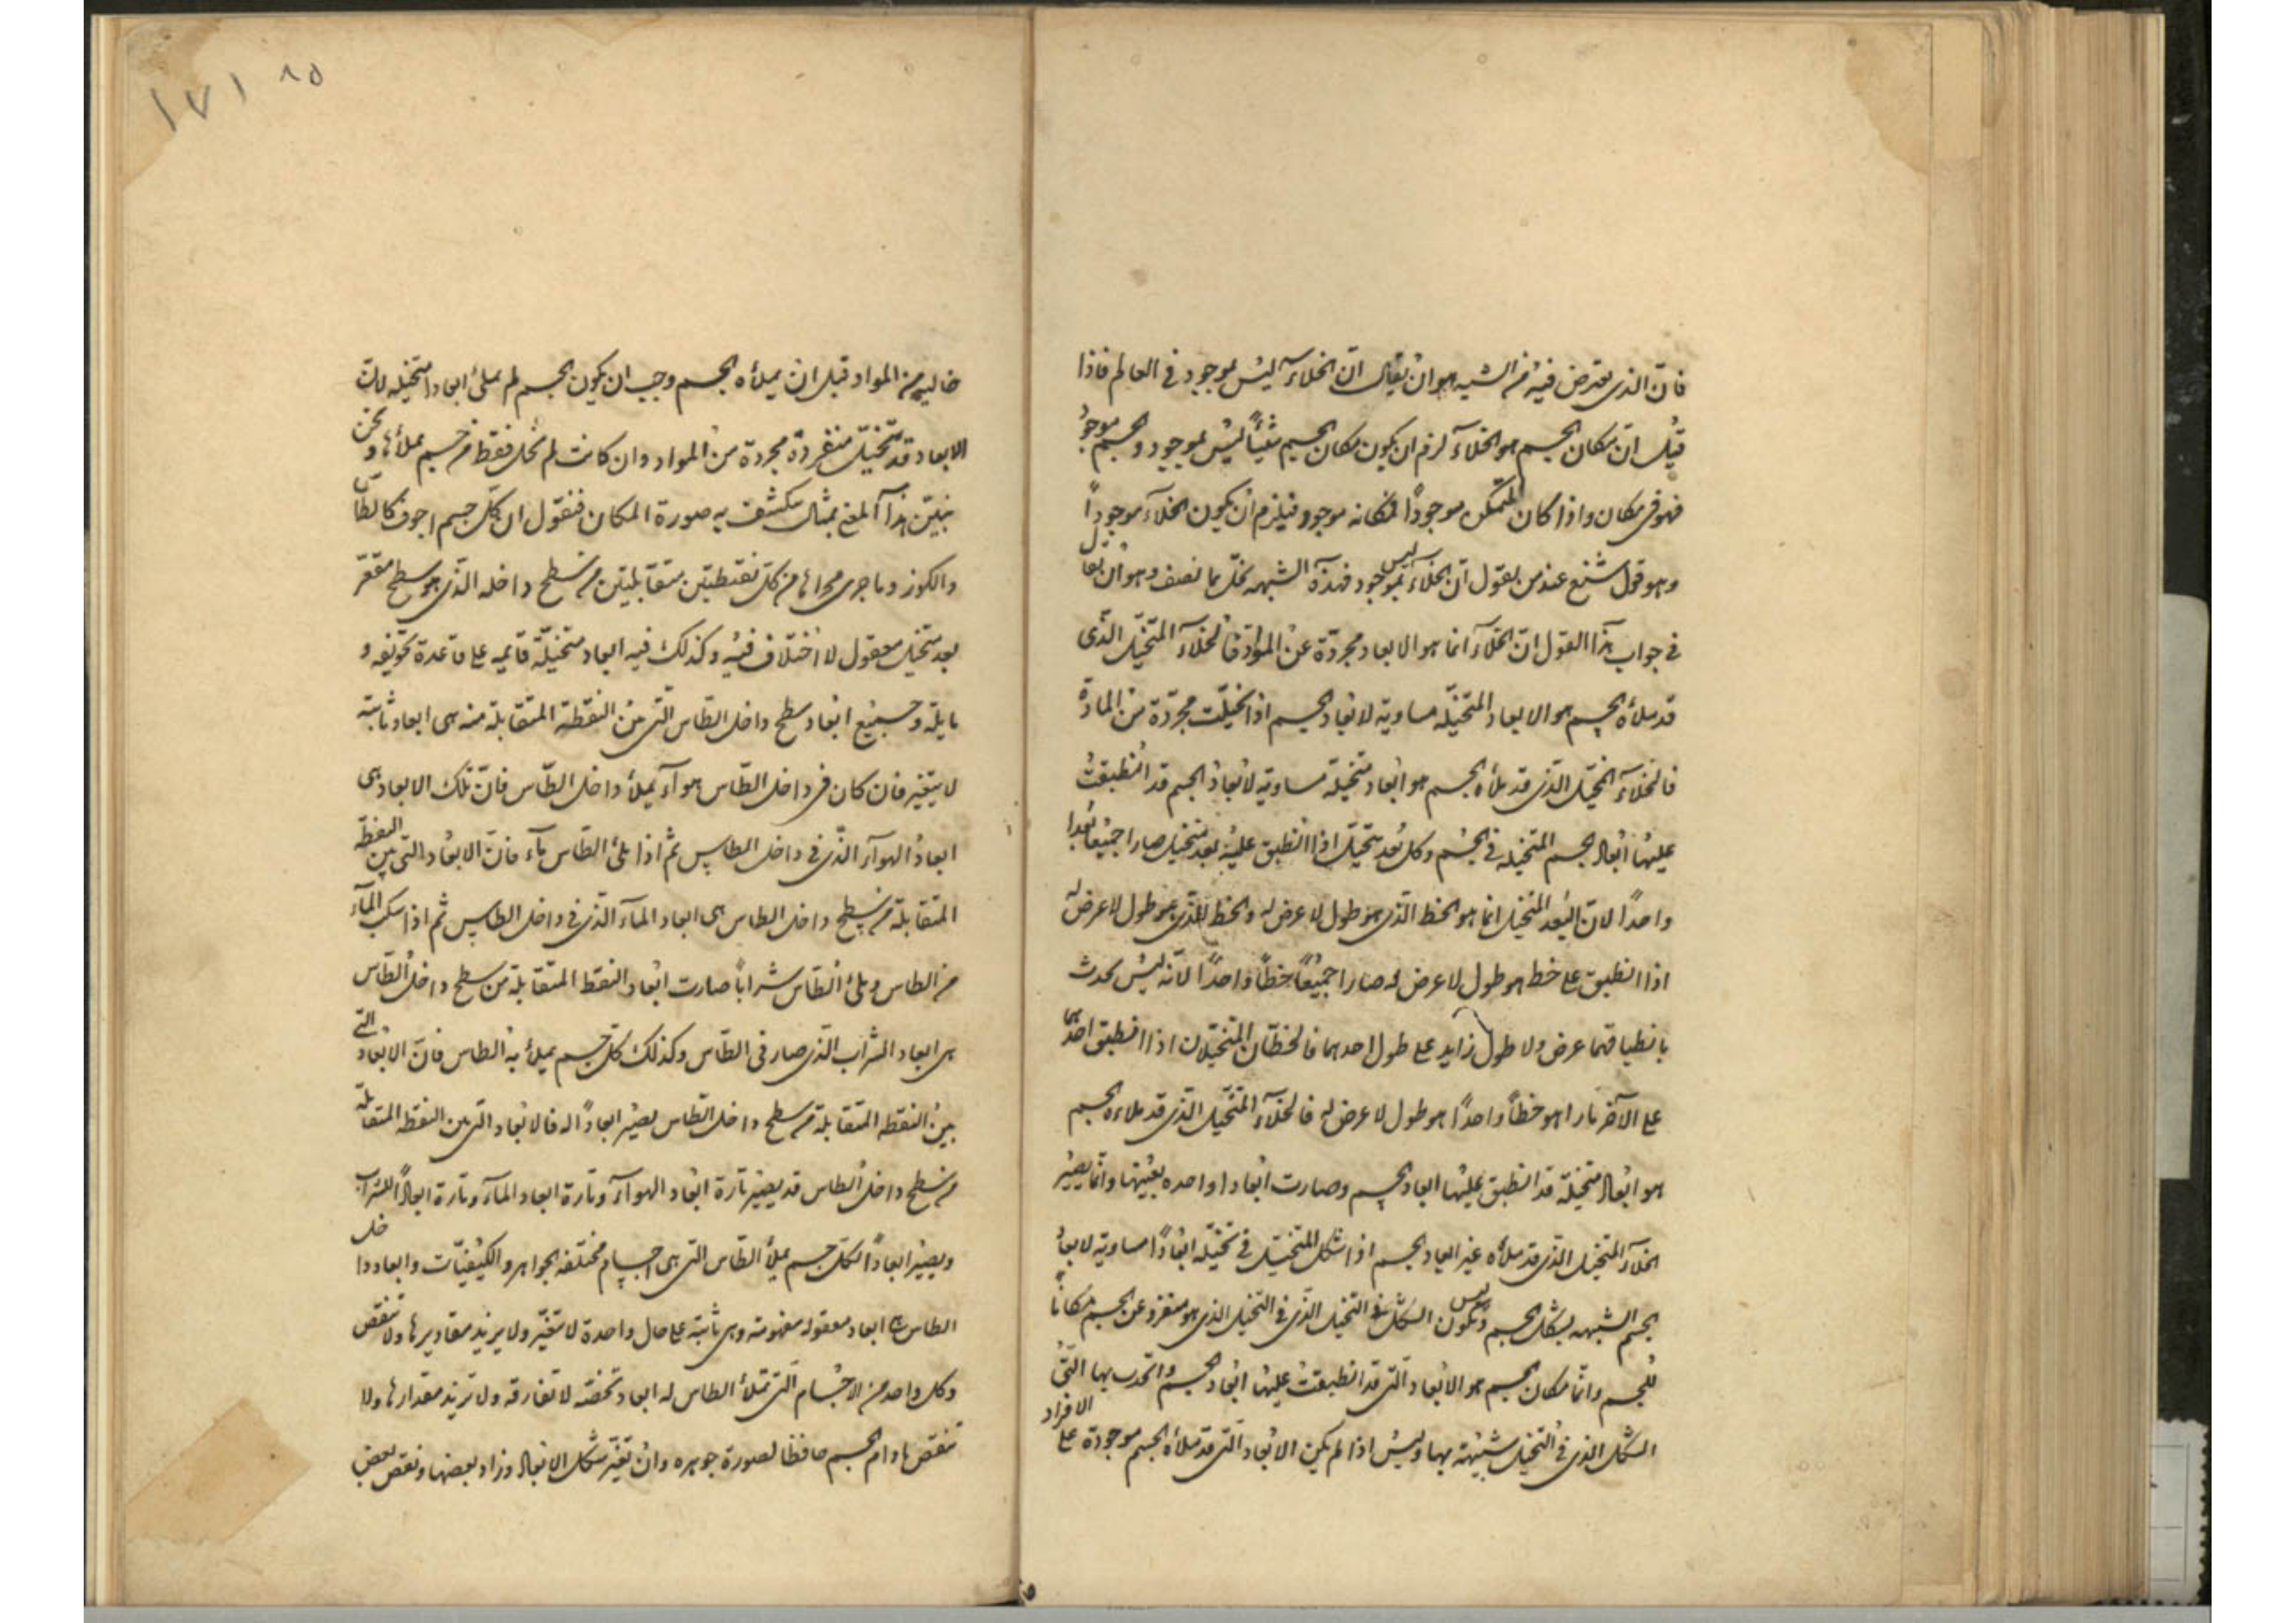 فان الذى يعترض فيه من الشبه هو ان يقال ان الخلاء ليس بموجود فى العالم فاذا
قيل ان مكان الجسم هو الخلاء لزم ان يكون مكان الجسم شيئاً ليس بموجود والجسم موجود
فهو فى مكان واذا كان المتمكن موجوداً فمكانه موجود فيلزم ان يكون الخلاء موجوداً
وهو قول شنع عند من يقول ان الخلاء ليس بموجود فهذه الشبهه تحل بما نصف وهو ان يقال
فى جواب هذا القول ان الخلاء انما هو الابعاد مجردة عن المواد فالخلاء المتخيل الذى
قد ملأه الجسم هو الابعاد المتخيله مساوية لابعاد الجسم اذا تخيلت مجردة من المادة
فالخلاء المتخيل الذى قد ملأه الجسم هو ابعاد متخيلة مساوية لابعاد الجسم قد انطبقت
عليها ابعاد الجسم المتخيله فى الجسم وكل بعد متخيل اذا انطبق عليه بعد متخيل صارا جميعا بعدا
واحداً لان البعد المتخيل انما هو الخط الذى هو طول لا عرض له والخط الذى هو طول لا عرض له
اذا انطبق على خط هو طول لا عرض له صارا جميعاً خطاً واحداً لانه ليس يحدث
بانطباقهما عرض ولا طول زايد على طول احدهما فالخطان المتخيلان اذا انطبق احدهما
على الآخر صارا هو خطاً واحداً هو طول لا عرض له فالخلاء المتخيل الذى قد ملاءه الجسم
هو ابعاد متخيلة قد انطبق عليها ابعاد الجسم وصارت ابعادا واحده بعينها وانما يصير
الخلاء المتخيل الذى قد ملأه غير ابعاد الجسم اذا شكل المتخيل فى تخيله ابعاداً مساوية لابعاد
الجسم الشبيهه بشكل الجسم وليس يكون الشكل فى التخيل الذى فى التخيل الذى هو منفرد عن الجسم مكاناً
للجسم وانما مكان الجسم هو الابعاد التى قد انطبقت عليها ابعاد الجسم واتحدت بها التى
الشكل الذى فى التخيل شبيهة بها وليس اذا لم يكن الابعاد التى قد ملأه الجسم موجودة على الافراد
خاليه من المواد قبل ان يملأه الجسم وجب ان يكون الجسم لم يملئ ابعادا متخيله لان
الابعاد قد تتخيل منفردة مجردة من المواد وان كانت لم تخل فقط من جسم يملأها ونحن
نبين هذا المعنى بمثال يكشف به صورة المكان فنقول ان كل جسم اجوف كالطاس
والكوز وما جرى مجراها من كل نقتطين متقابلتين من سطح داخله الذى هو سطح مقعر
بعد متخيل معقول لا اختلاف فيه وكذلك فيه ابعاد متخيلة قايمه على قاعدة تجويفه و
مايلة وجميع ابعاد سطح داخل الطاس التى من النقطة المتقابلة منه هى ابعاد ثابتة
لا يتغير فان كان فى داخل الطاس هواء يملأ داخل الطاس فان تلك الابعاد هى
ابعاد الهواء الذى فى داخل الطاس ثم اذا ملئ الطاس ماء فان الابعاد التى بين النقطة
المتقابلة من سطح داخل الطاس هى ابعاد الماء الذى فى داخل الطاس ثم اذا سكب الماء
من الطاس وملئ الطاس شراباً صارت ابعاد النقط المتقابلة من سطح داخل الطاس
هى ابعاد الشراب الذى صار فى الطاس وكذلك كل جسم يملأ به الطاس فان الابعاد التى
بين النقطه المتقابلة من سطح داخل الطاس يصير ابعاداً له فالابعاد التى بين النقطه المتقابلة
من سطح داخل الطاس قد يصير تارة ابعاد الهواء وتارة ابعاد الماء وتارة ابعاداً للشراب
ويصير ابعاداً لكل جسم يملأ الطاس التى هى اجسام مختلفه الجواهر والكيفيات وابعاد داخل
الطاس هى ابعاد معقوله مفهومة وهى ثابتة على حال واحدة لا تتغير ولا يزيد مقاديرها ولا تنقص
وكل واحد من الاجسام التى تملأ الطاس له ابعاد تخصه لا تفارقه ولا تزيد مقدارها ولا
تنقص ما دام الجسم حافظا لصورة جوهره وان تغير شكل الابعاد وزاد بعضها ونقص بعض
١٧١ ٨٥